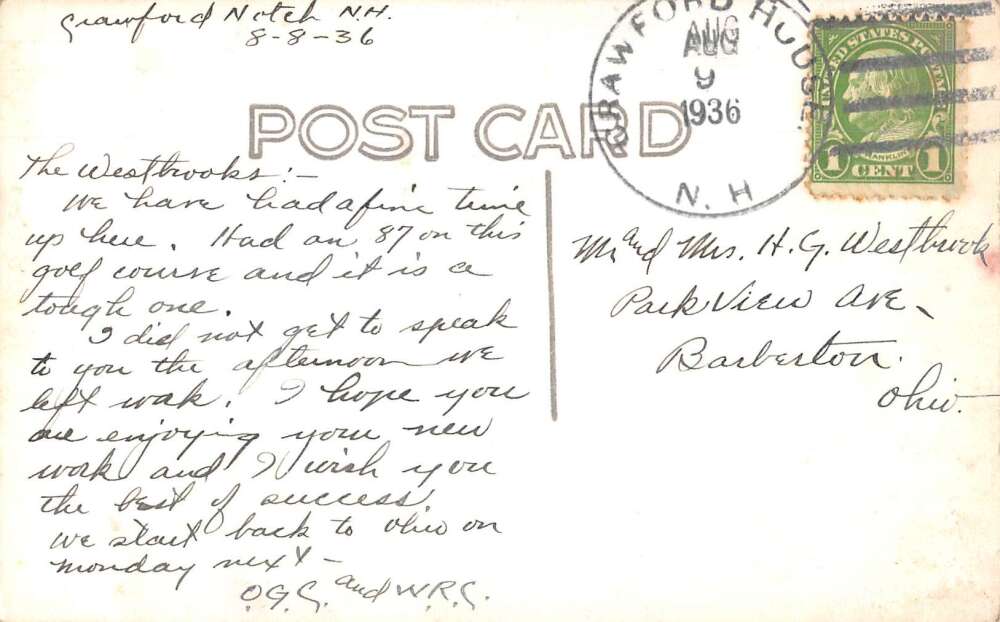 Crawford Notch N.H.
8-8-36
CRAWFORD HOUSE
AUG
9
1936
N. H
UNITED STATES POSTAGE
FRANKLIN
1 CENT 1
POST CARD
The Westbrooks:-
We have had a fine time
up here. Had an 87 on this
golf course and it is a
tough one.
I did not get to speak
to you the afternoon we
left work. I hope you
are enjoying your new
work and I wish you
the best of success.
We start back to Ohio on
Monday next-
O.G.C. and W.R.C.
Mr and Mrs. H. G. Westbrook
Park View Ave-
Barberton.
Ohio.